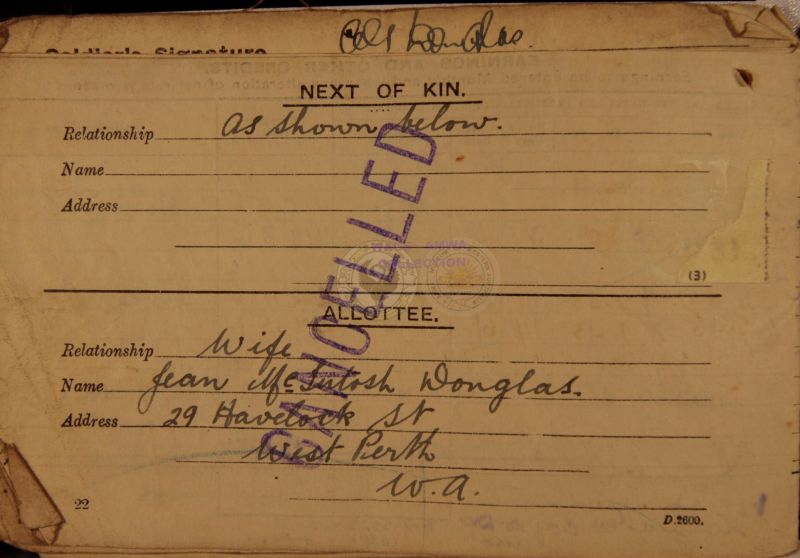 Soldier's Signature Douglas.
NEXT OF KIN.
Relationship As shown below.
Name
Address
CANCELLED
(3)
ALLOTTEE.
Relationship Wife
Name Jean McIntosh Douglas.
Address 29 Havelock St
West Perth
W.A.
22
D.2600.